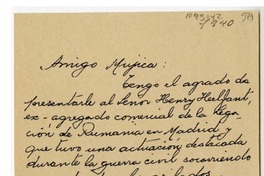 Amigo Mujica:
Tengo el agrado de
presentarle al señor Henry Helfant,
ex-agregado comercial de la Lega-
ción de Rumania en Madrid y
que tuvo una actuación destacada
durante la guerra civil socorriendo